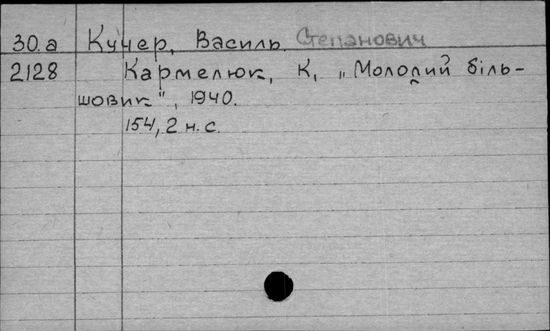 30.а Кучер, Василь Степанович
2128 Кармелюк, К, „Молодий біль-
шовик", 1940.
154, 2 н.с.